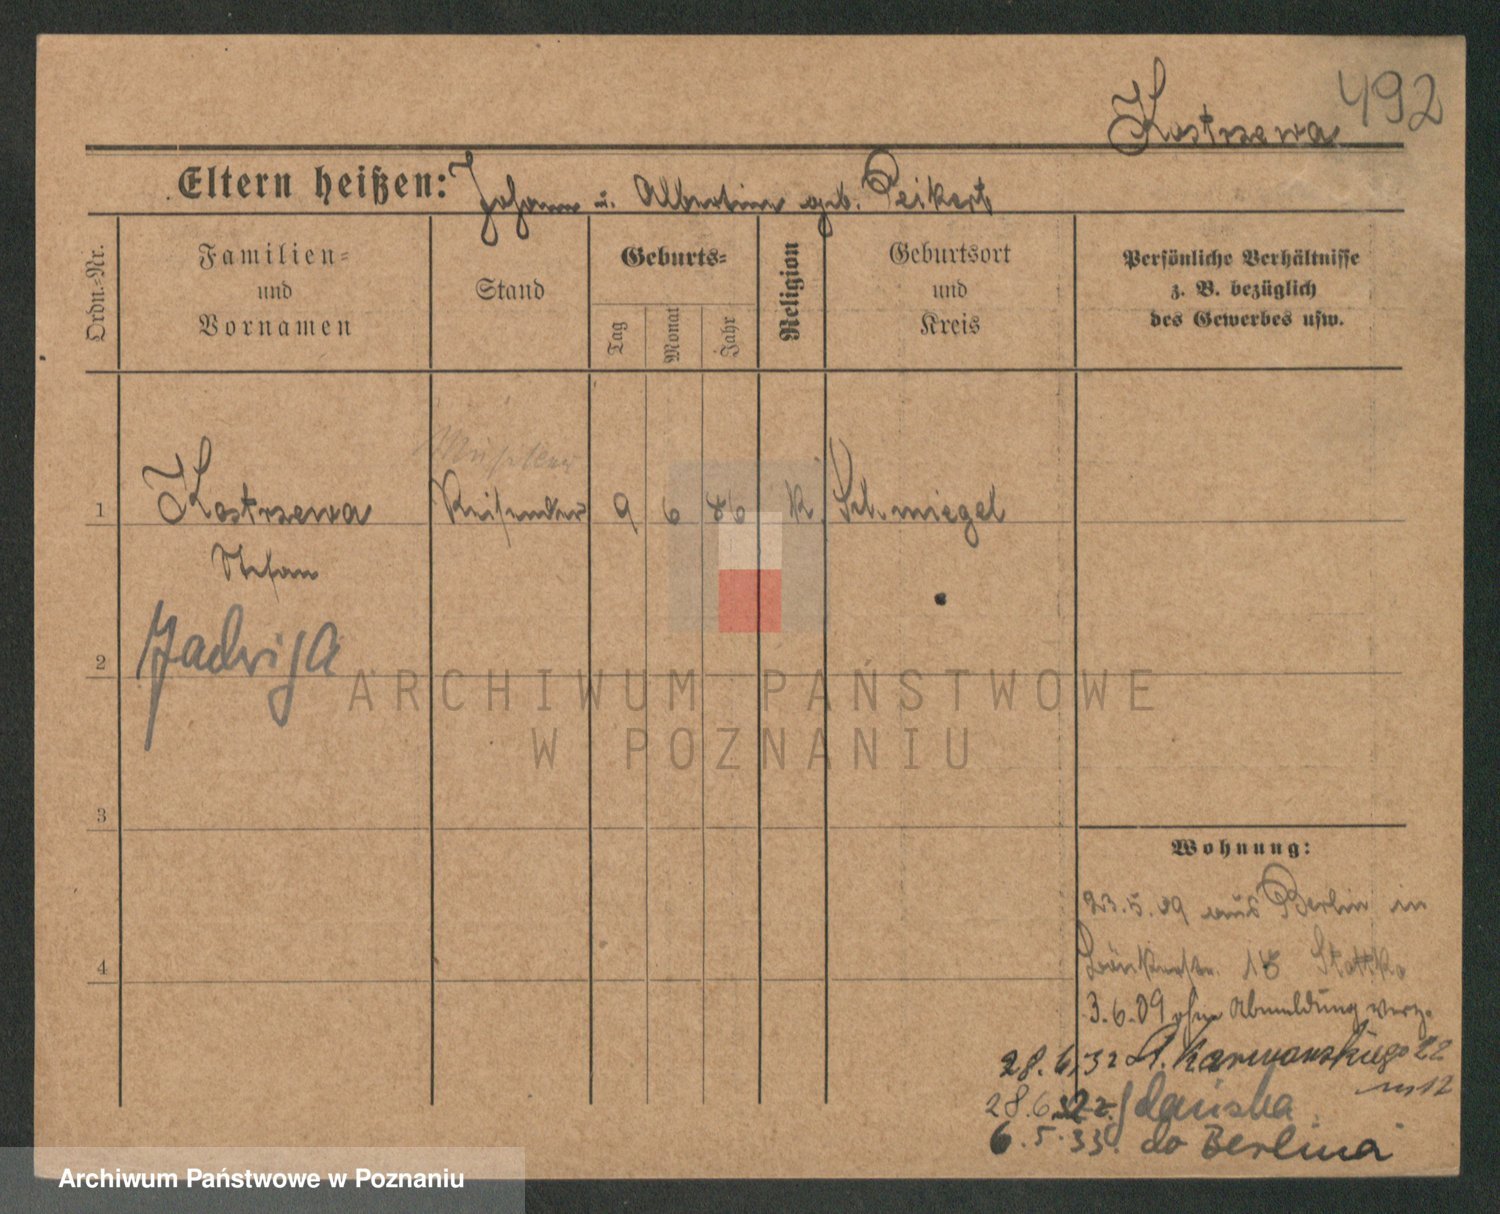 492
Kostrzewa
Eltern heißen: Johann u. Albertine geb. Peikert
Ordn.-Nr.
Familien-
und
Vornamen
Stand
Geburts-
Tag
Monat
Jahr
Religion
Geburtsort
und
Kreis
Persönliche Verhältnisse
z. B. bezüglich
des Gewerbes usw.
1 Kostrzewa Reisender 9 6 86 k. Schmiegel
Stefan
2 Jadwiga
ARCHIWUM PAŃSTWOWE
W POZNANIU
3
Wohnung:
23.5.09 aus Berlin in
18
4
3.6.09 ohne Abmeldung verz.
28.6.32 22
m 12
28.6.32 z Gdańska
6.5.33. do Berlina
Archiwum Państwowe w Poznaniu